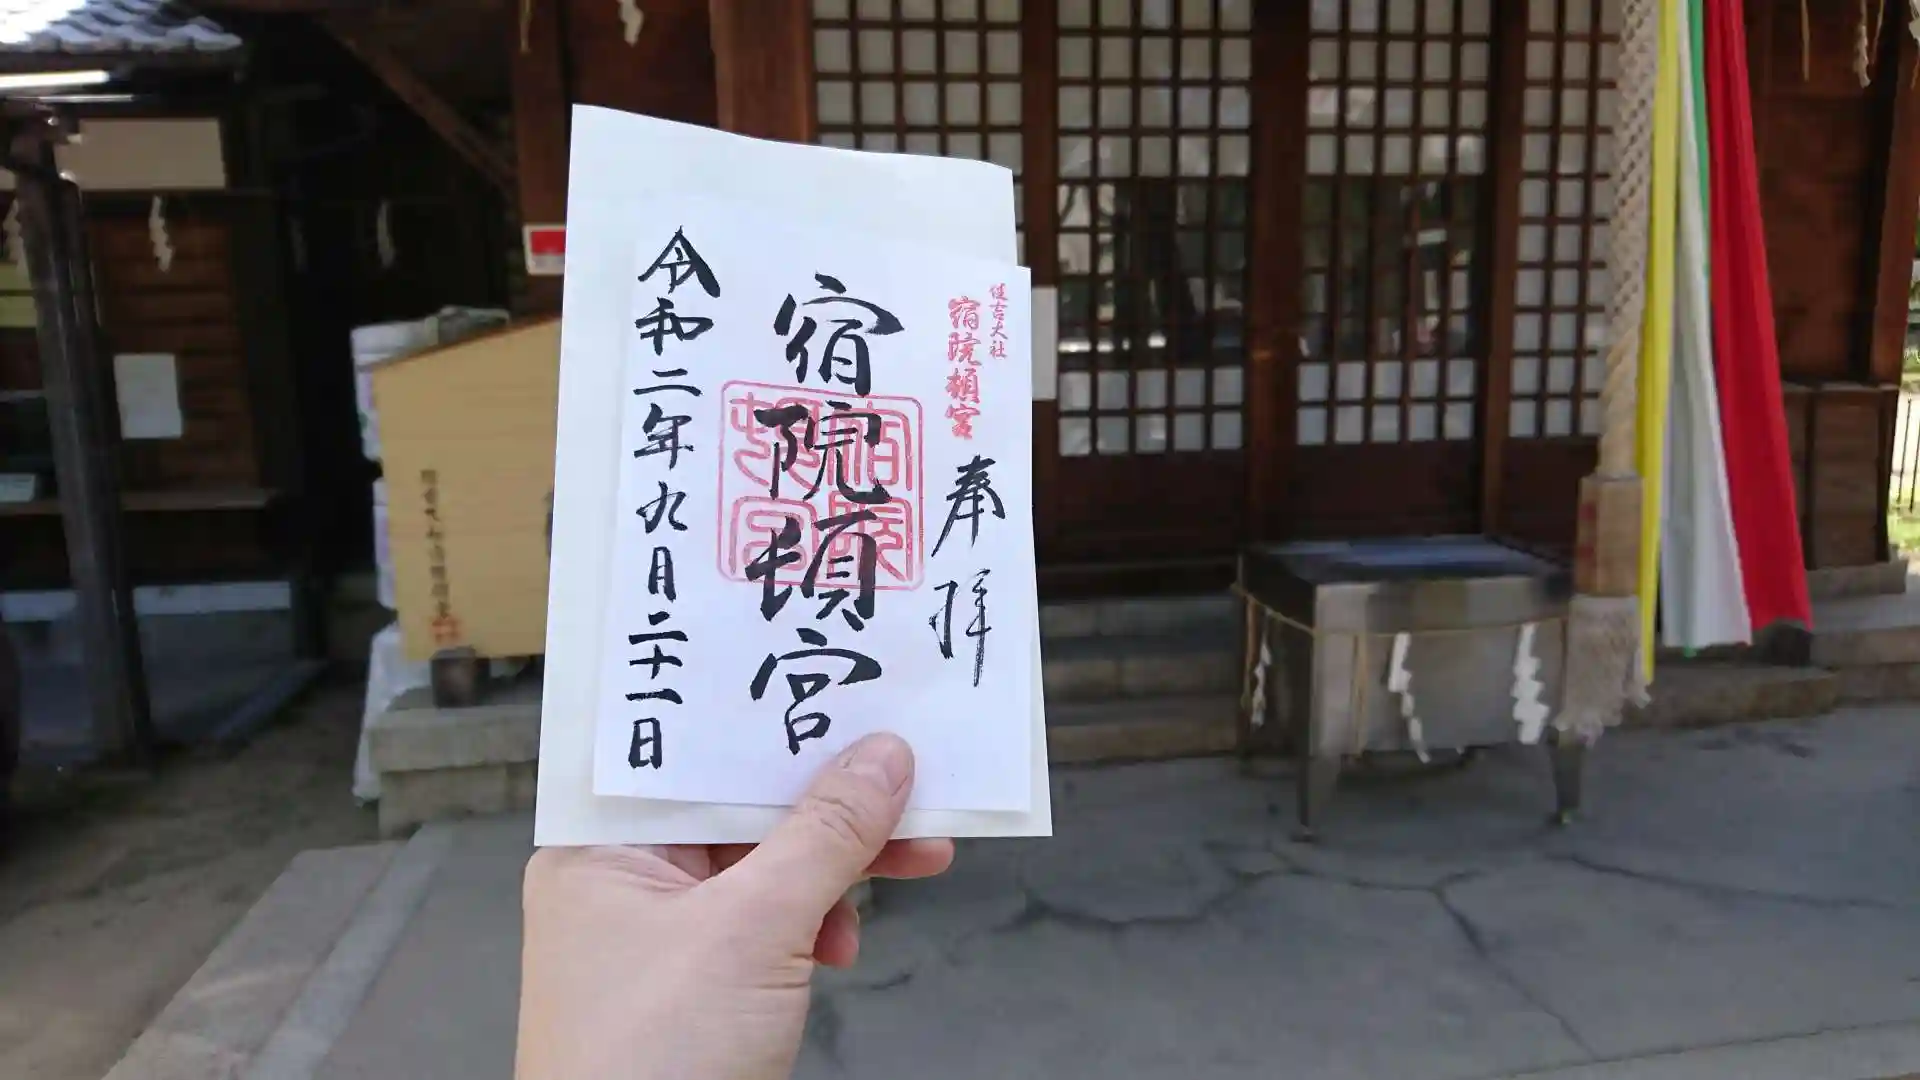 住吉大社
宿院頓宮
奉拝
宿院頓宮
令和二年九月二十一日